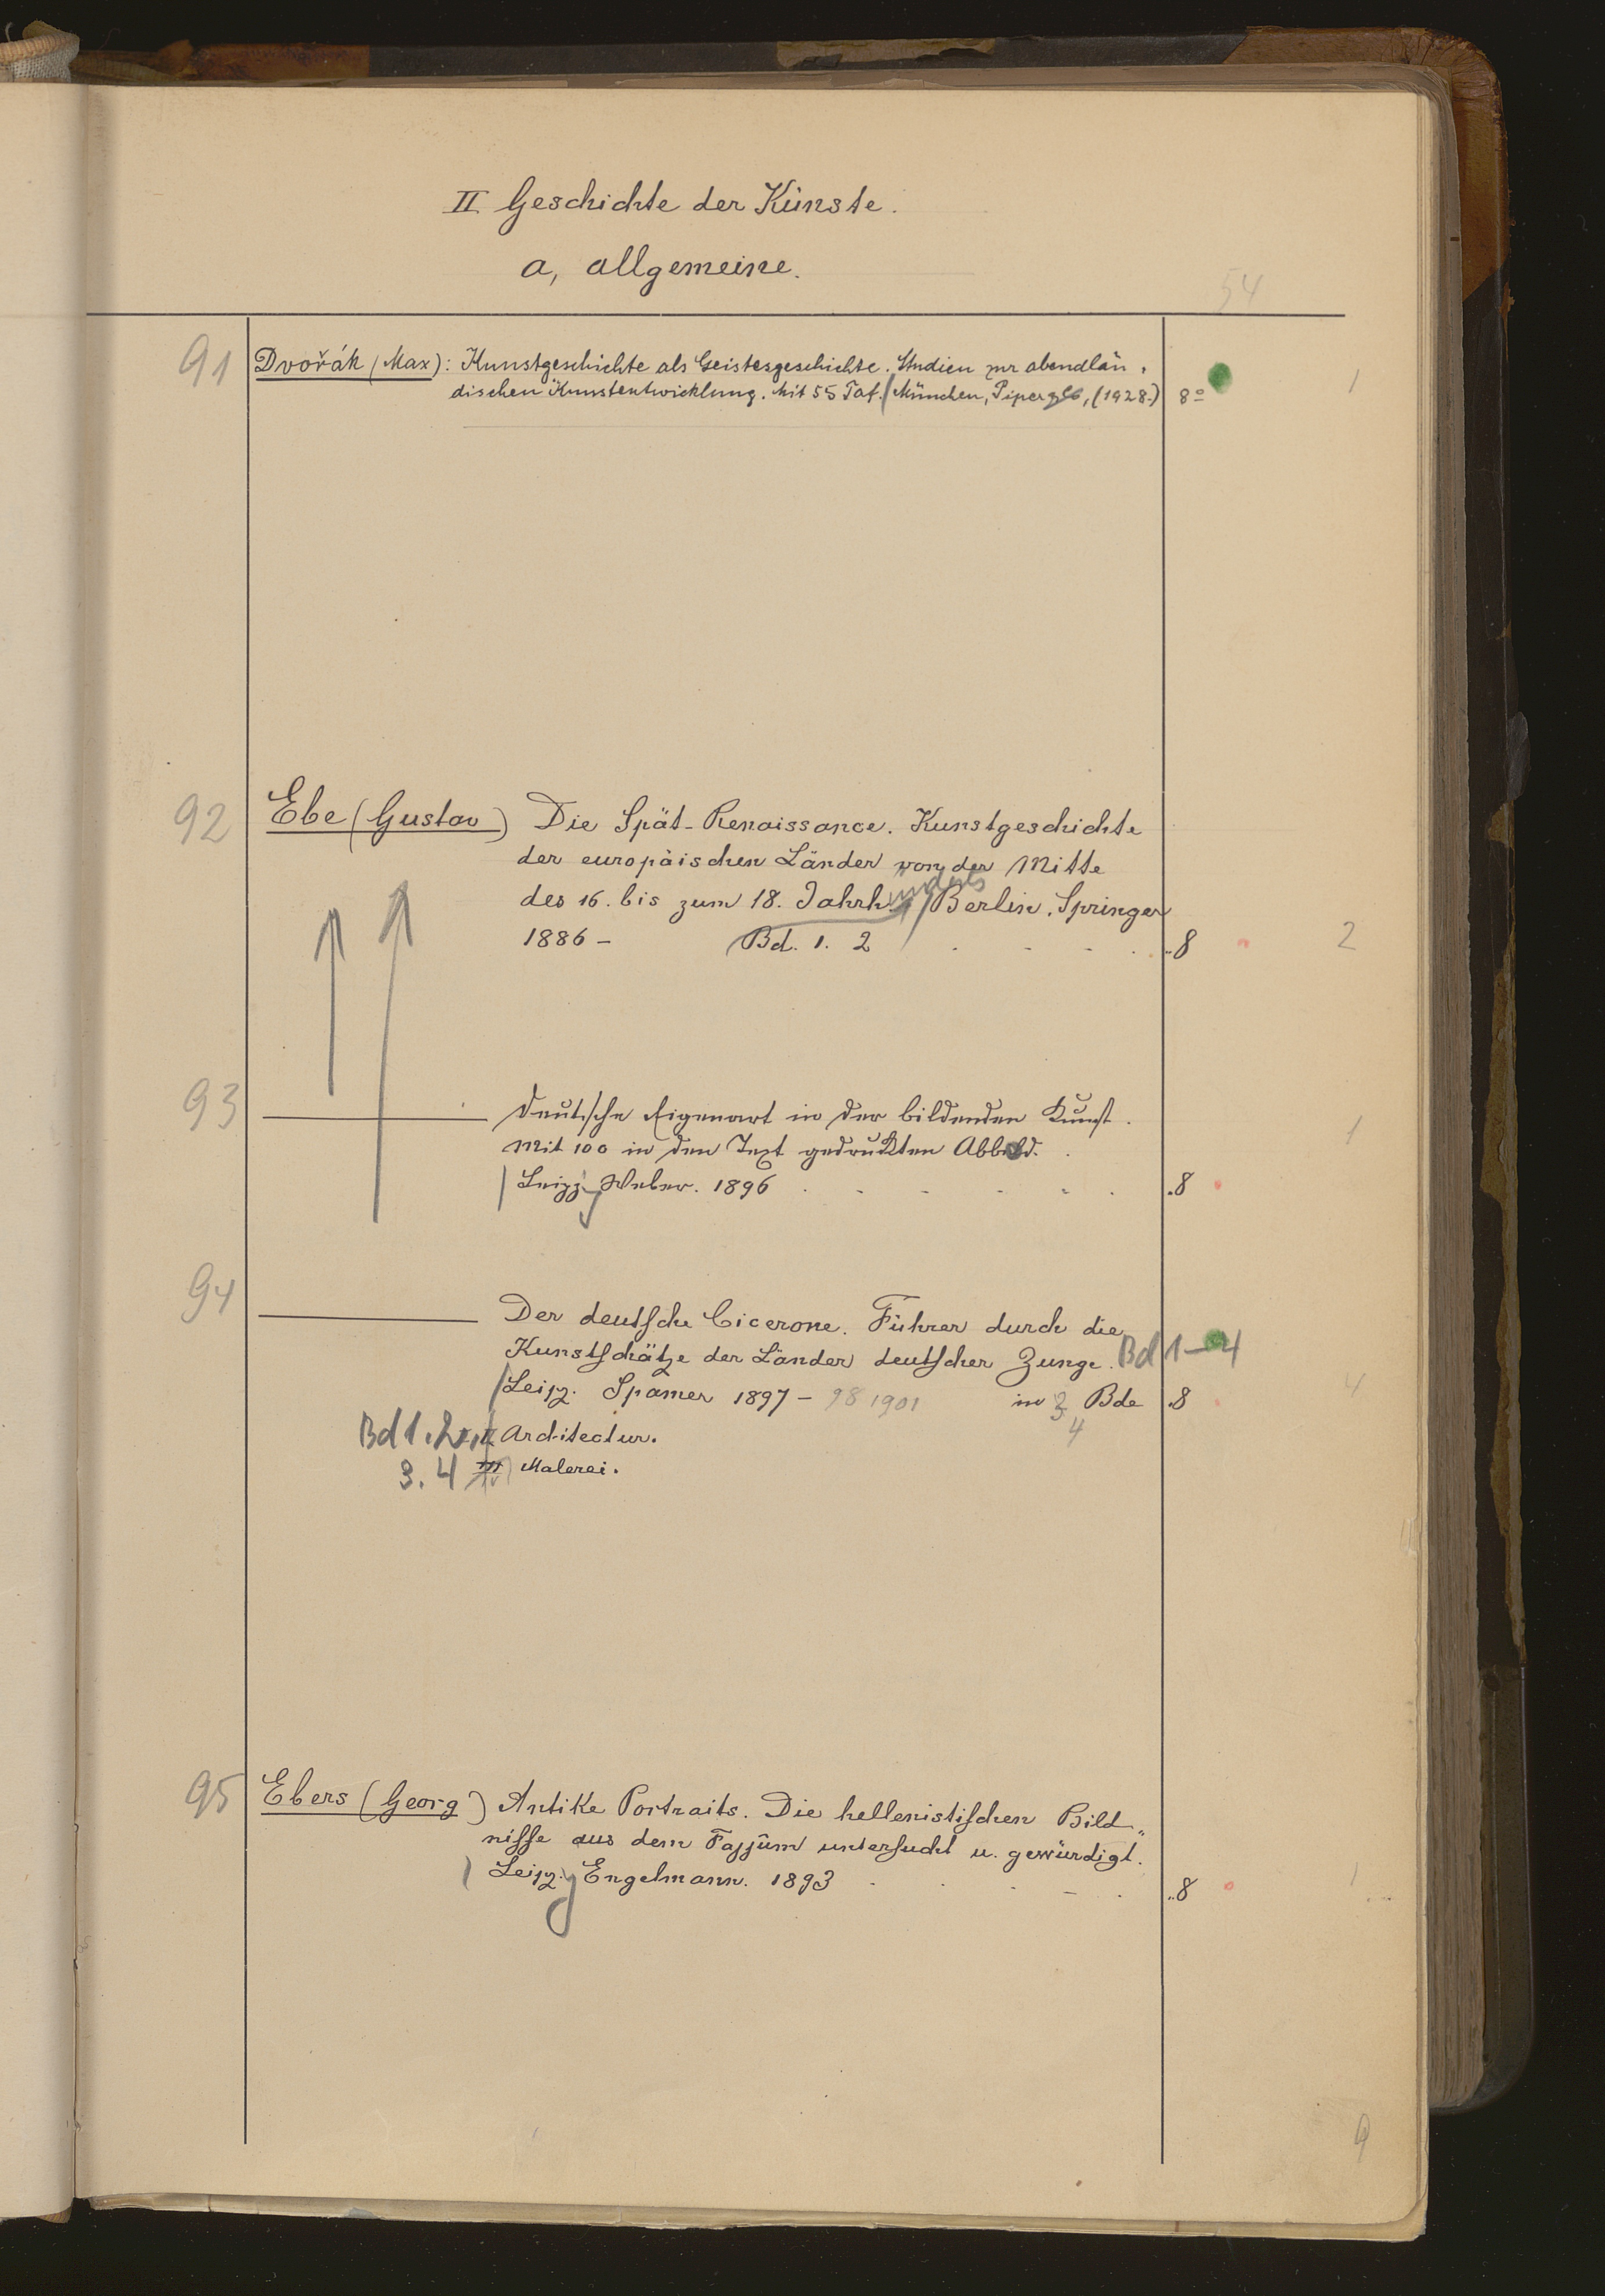 II Geschichte der Künste.
a, allgemeine.
54
91 Dvořák (Max): Kunstgeschichte als Geistesgeschichte. Studien zur abendlän-
dischen Kunstentwicklung. Mit 55 Taf. / München, Piper, (1928.) 8° 1
92 Ebe (Gustav) Die Spät-Renaissance. Kunstgeschichte
der europäischen Länder von der Mitte
des 16. bis zum 18. Jahrhunderts / Berlin, Springer
1886 - Bd. 1. 2 . . . . 8 2
93 ——— Deutsche Eigenart in der bildenden Kunst.
Mit 100 in den Text gedruckten Abbild.
/ Leipz. Weber. 1896 . . . . . . 8 1
94 ——— Der deutsche Cicerone. Führer durch die
Kunstschätze der Länder deutscher Zunge. Bd 1-4
/ Leipz. Spamer 1897 - 98 1901 in 3 4 Bde 8 4
Bd 1. 2 Architectur.
3. 4 III Malerei.
95 Ebers (Georg) Antike Portraits. Die hellenistischen Bild„
nisse aus dem Fajjûm untersucht u. gewürdigt.
/ Leipz. Engelmann. 1893 . . . . . 8 1
9